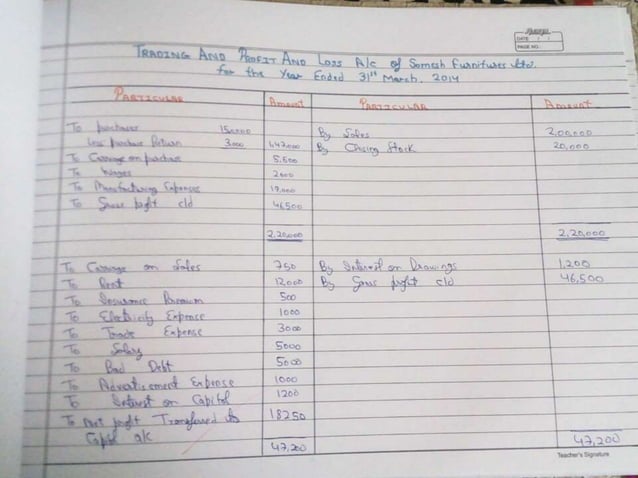 DATE
PAGE NO.
TRADING AND PROFIT AND LOSS A/c of Somesh Furnitures Ltd.
for the Year Ended 31st March, 2014
PARTICULAR Amount PARTICULAR Amount
To purchases 150,000 By Sales 2,00,000
Less purchase Return 3,000 1,47,000 By Closing Stock 20,000
To Carriage on purchase 5,500
To Wages 2000
To Manufacturing Expenses 19,000
To Gross profit c/d 46,500
2,20,000 2,20,000
To Carriage on Sales 750 By Interest on Drawings 1,200
To Rent 12,000 By Gross profit c/d 46,500
To Insurance Premium 500
To Electricity Expence 1000
To Trade Expense 3000
To Salary 5000
To Bad Debt 5000
To Advertisement Expense 1000
To Interest on Capital 1200
To Net profit Transferred to 18250
Capital a/c 47,200 47,200
Teacher's Signature